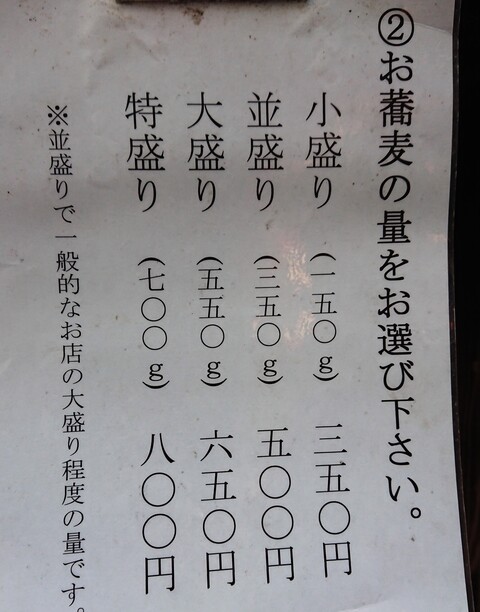 ②お蕎麦の量をお選び下さい。
小盛り （一五〇ｇ） 三五〇円
並盛り （三五〇ｇ） 五〇〇円
大盛り （五五〇ｇ） 六五〇円
特盛り （七〇〇ｇ） 八〇〇円
※並盛りで一般的なお店の大盛り程度の量です。